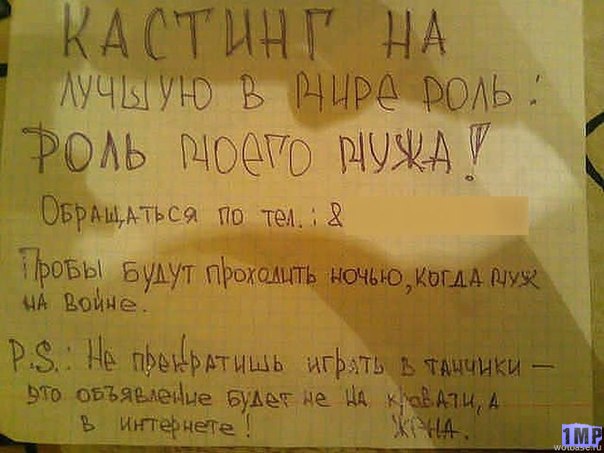 КАСТИНГ НА
ЛУЧШУЮ В МИРЕ РОЛЬ:
РОЛЬ МОЕГО МУЖА!
ОБРАЩАТЬСЯ ПО ТЕЛ.: 8
ПРОБЫ БУДУТ ПРОХОДИТЬ НОЧЬЮ, КОГДА МУЖ
НА ВОЙНЕ.
P.S.: НЕ ПРЕКРАТИШЬ ИГРАТЬ В ТАНЧИКИ —
ЭТО ОБЪЯВЛЕНИЕ БУДЕТ НЕ НА КРОВАТИ, А
В ИНТЕРНЕТЕ! ЖЕНА.
1MP
wotbase.ru